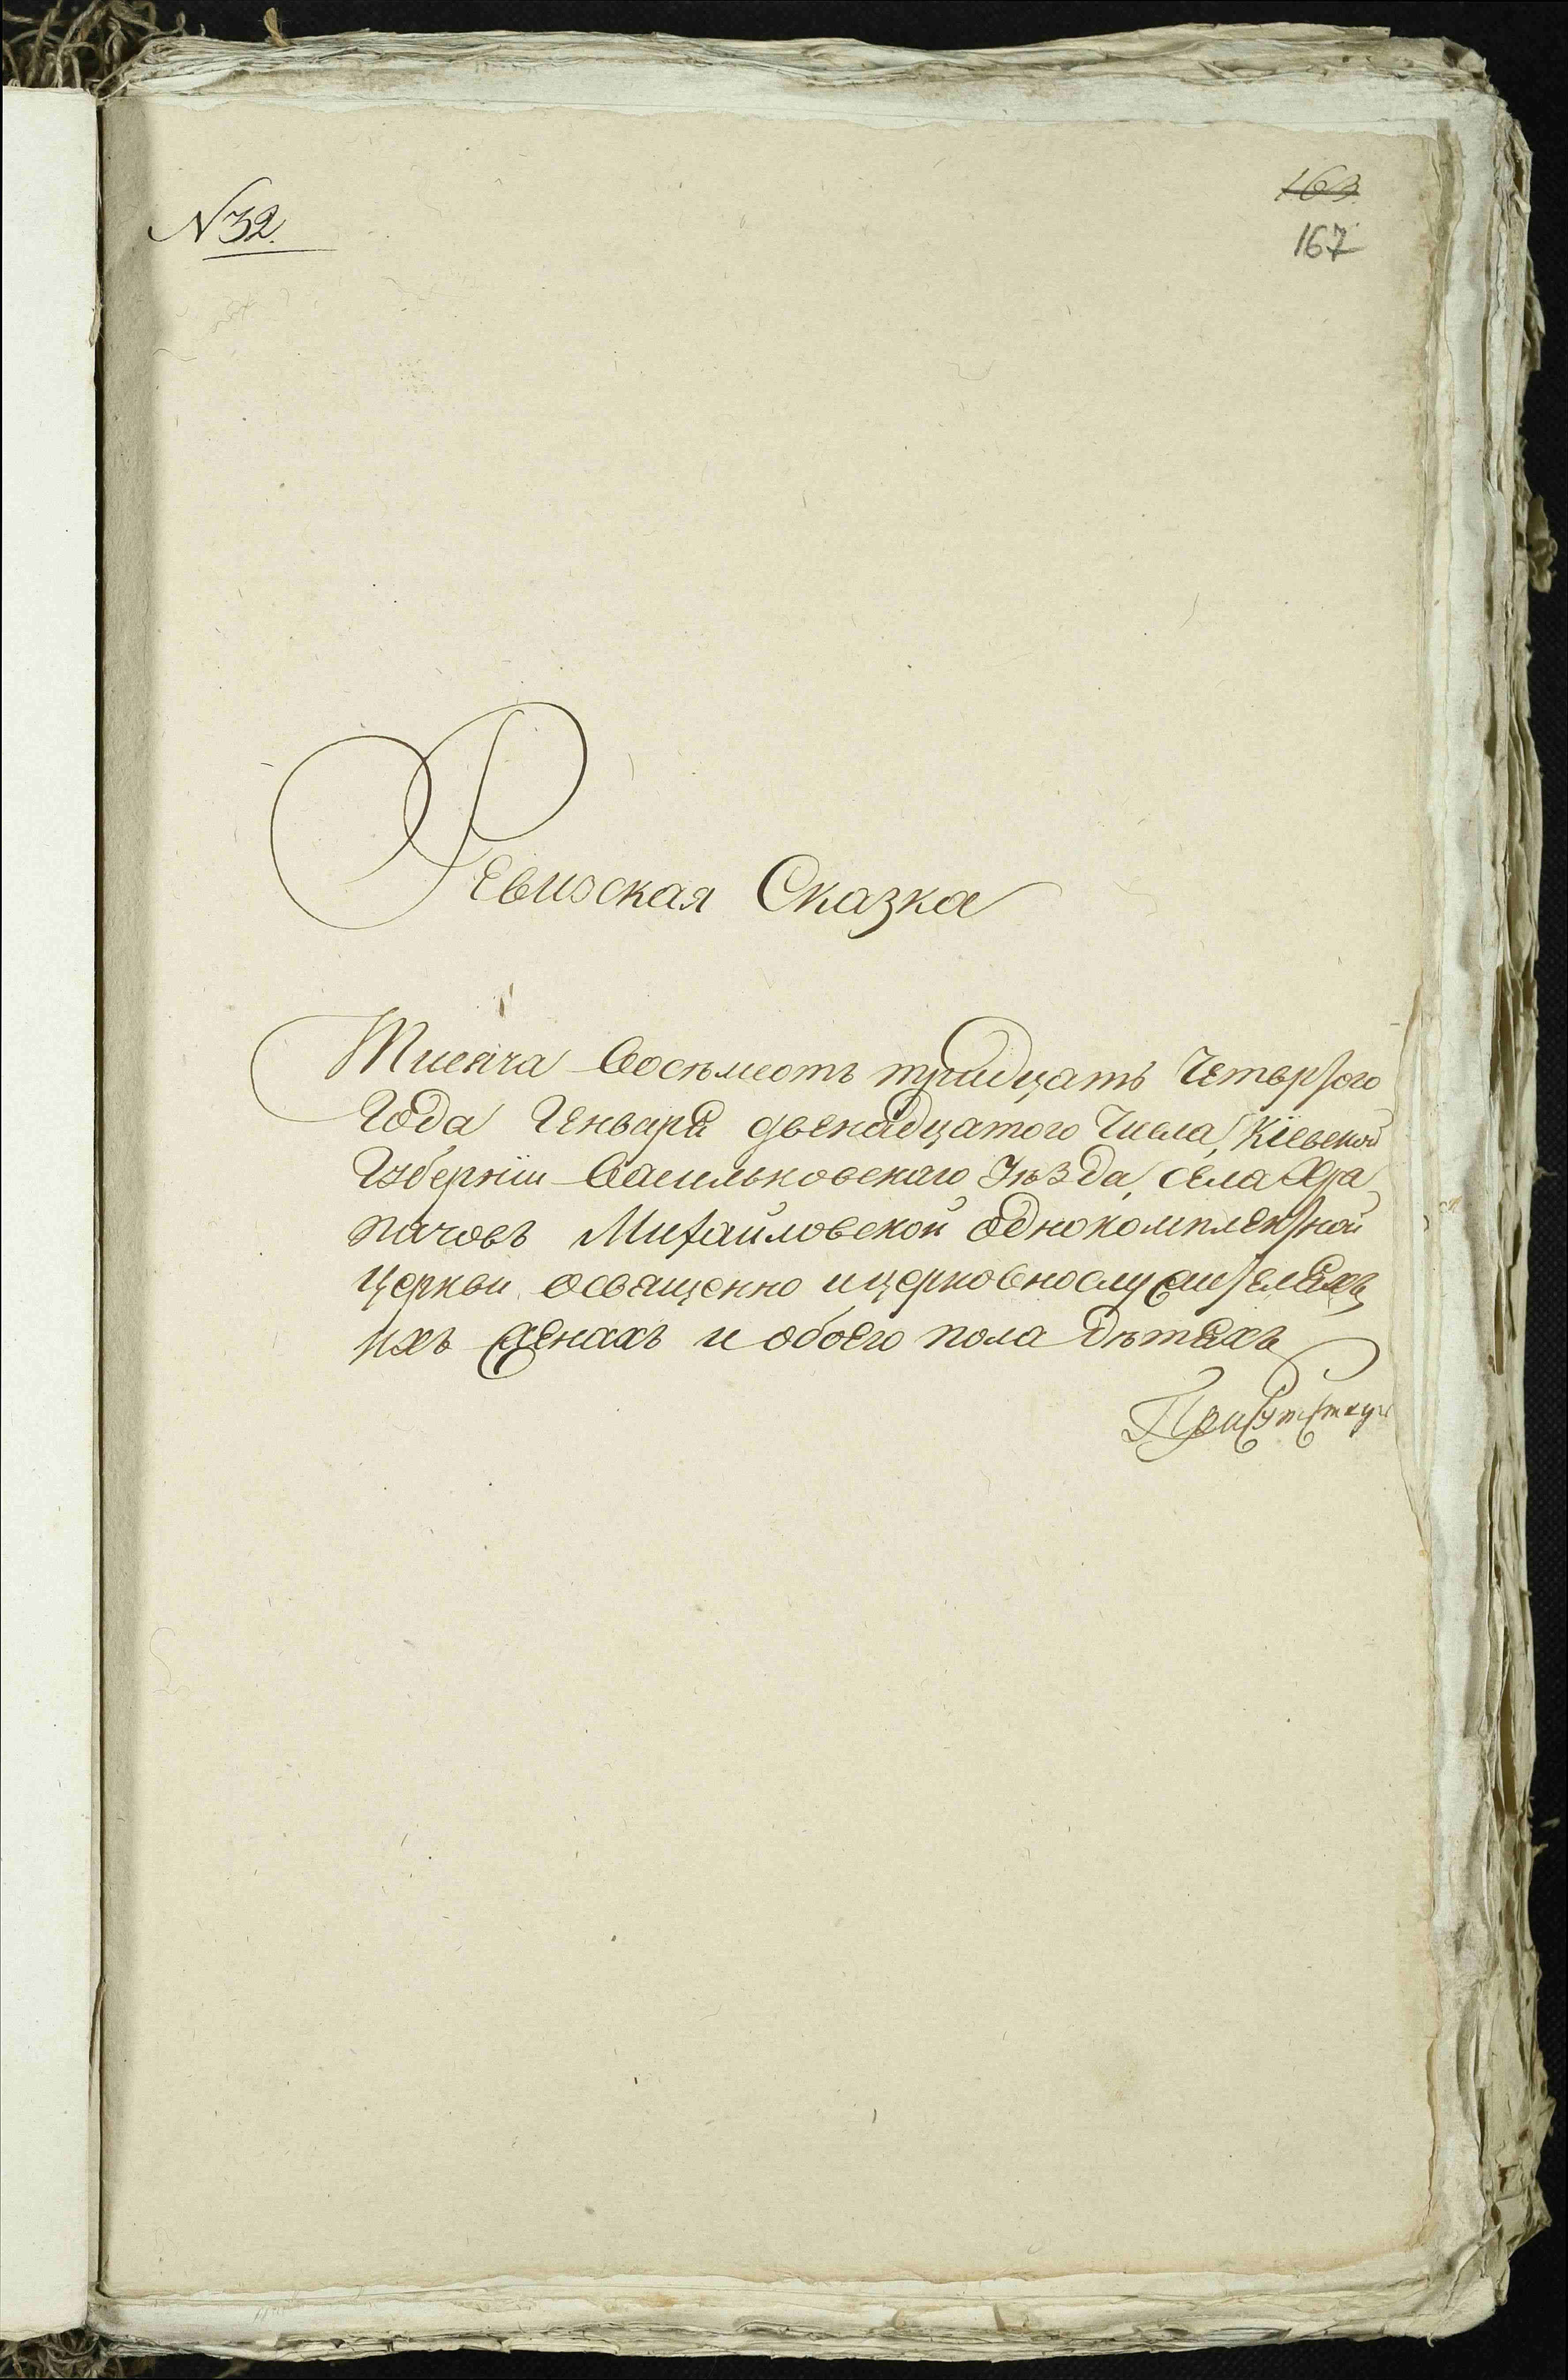 N 32.
163
167
Ревизская Сказка
Тисяча восемсотъ тридцать четвертого
Года Генваря двенадцатого числа, Кіевской
Губерніи Васильковскаго Уѣзда, села Хра
пачовъ Михайловской однокомплектной
церкви освященно и церковнослужителяхъ,
ихъ женахъ и обоего пола дѣтяхъ